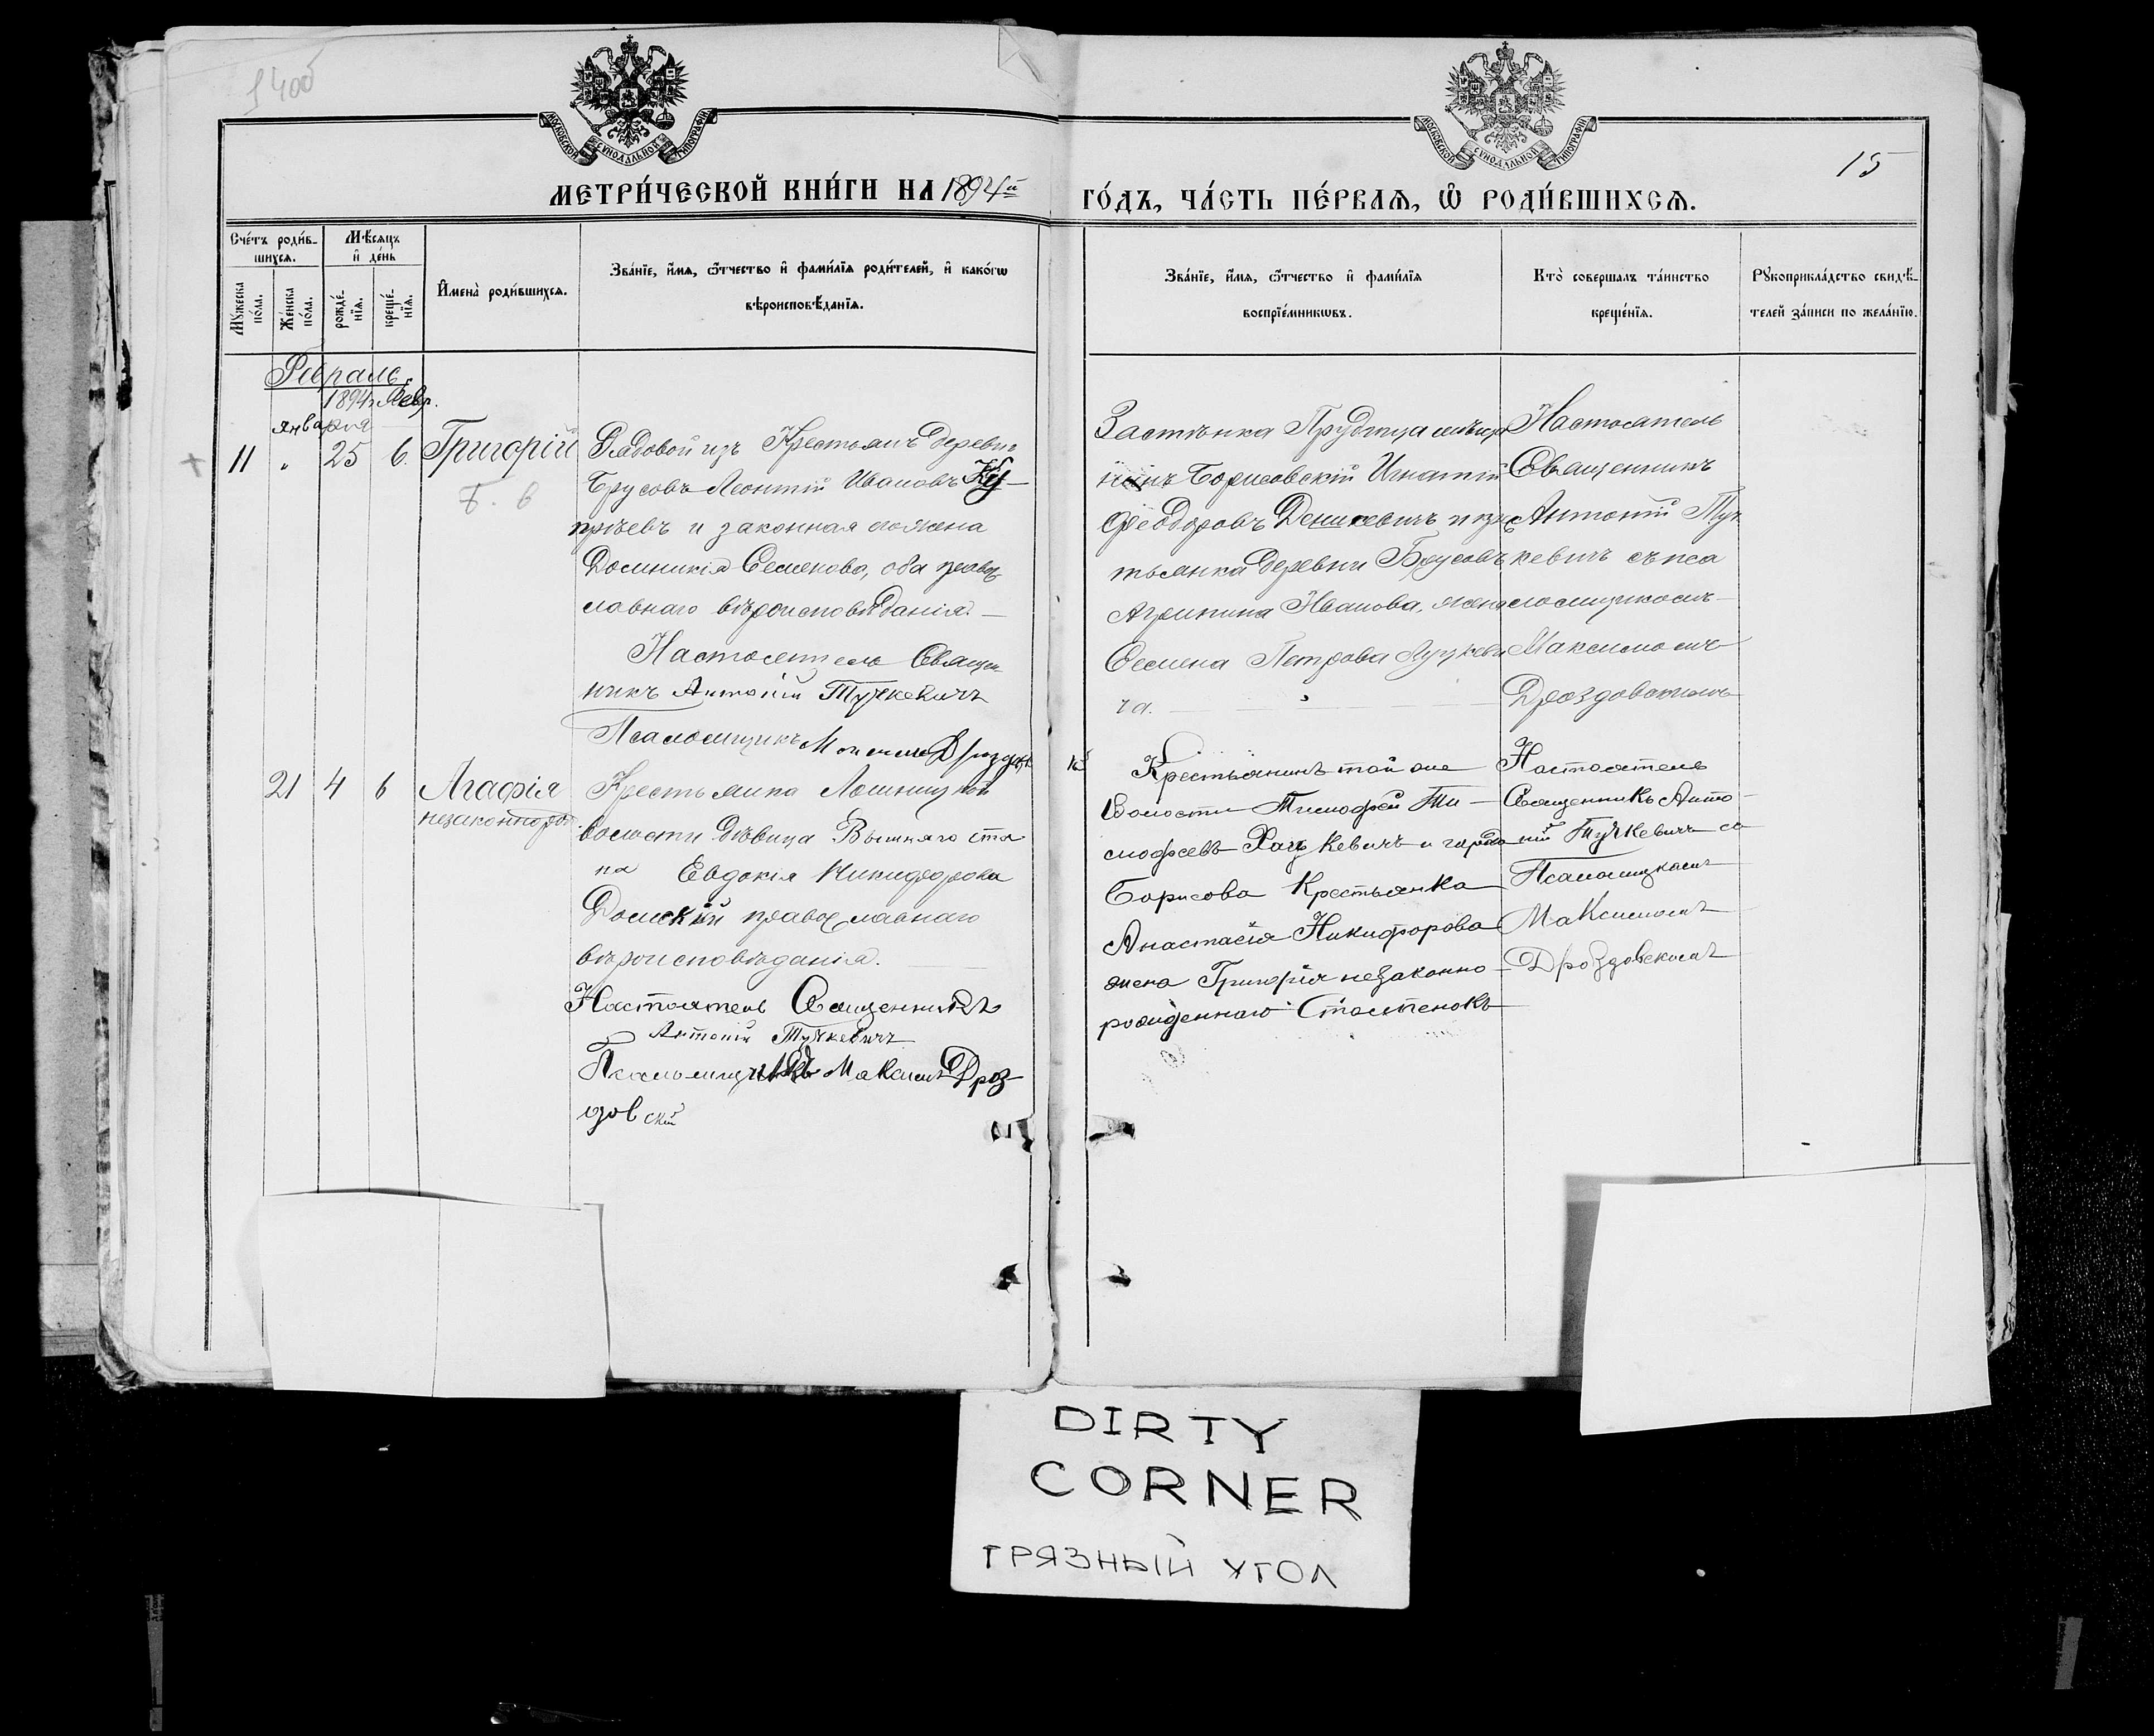 МОСКОВСКОЙ СѴНОДАЛЬНОЙ ТИПОГРАФІИ
МОСКОВСКОЙ СѴНОДАЛЬНОЙ ТИПОГРАФІИ
15
МЕТРИ́ЧЕСКОЙ КНИ́ГИ НА 1894й
ГО́ДЪ, ЧА́СТЬ ПЕ́РВАѦ, Ѡ҆ РОДИ́ВШИХСѦ.
Сче́тъ роди́в-
шихсѧ.
Мѣ́сѧцъ
и҆ де́нь
Мꙋ́жеска
по́ла.
Же́нска
по́ла.
рожде́-
нїѧ.
креще́-
нїѧ.
И҆мена̀ роди́вшихсѧ.
Зва́нїе, и҆́мѧ, ѻ҆́тчество и҆ фами́лїѧ роди́телей, и҆ како́гѡ
вѣроисповѣ́данїѧ.
Зва́нїе, и҆́мѧ, ѻ҆́тчество и҆ фами́лїѧ
воспрїе́мникѡвъ.
Кто̀ совершалъ та́инство
креще́нїѧ.
Рꙋкоприкла́дство свидѣ́-
телей за́писи по жела́нїю.
Февраль.
1894 г. Февр.
января
11 „ 25 6. Григорій
Рядовой изъ Крестьянъ деревни
Брусовъ Леонтій Ивановъ Ку-
пріевъ и законная его жена
Домникія Семенова, оба правос
лавнаго вѣроисповѣданія. —
Настоятель Священ-
никъ Антоній Тучкевичъ
Псаломщикъ Дрозд
Застѣнка Прудища
Борисовскій Игнатій
Ѳеодоровъ Деникевичъ и крес
тьянка деревни Брусовъ
Агрипина Иванова, жена
Семена Петрова Луцкеви
ча.
Настоятель
Священникъ
Антоній Туч
кевичъ съ пса
ломщикомъ
Максимомъ
Дроздовскимъ
21 4 6 Агафія
незаконнорож
Крестьянка Лошницкой
волости дѣвица Вышняго ста
на Евдокія Никифорова
Домскій православнаго
вѣроисповѣданія.
Настоятель Священникъ
Антоній Тучкевичъ
Псаломщикъ Максимъ Дроз-
довскій
Крестьянинъ той же
волости Тимофей Ти-
мофеевъ Хацкевичъ и города
Борисова Крестьянка
Анастасія Никифорова
жена Григорія незаконно-
рожденнаго Стастенокъ
Настоятель
Священникъ Анто-
ній Тучкевичъ со
Псаломщикомъ
Максимомъ
Дроздовскимъ
DIRTY
CORNER
ГРЯЗНЫЙ УГОЛ